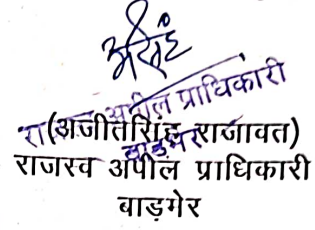 राजस्व अपील प्राधिकारी
बाड़मेर
(अजीतसिंह राजावत)
राजस्व अपील प्राधिकारी
बाड़मेर